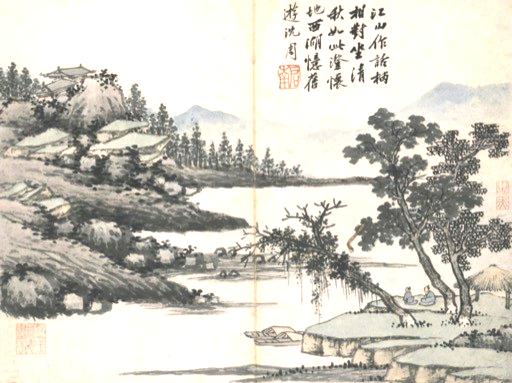 江山作話柄
相對坐清
秋如此澄懷
地西湖憶舊
遊沈周